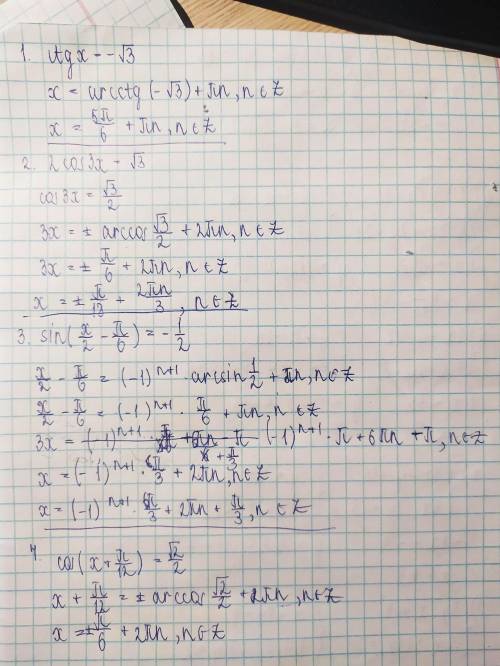 1. ctgx = -√3
x = arcctg(-√3) + πn, n ∈ Z
x = 5π/6 + πn, n ∈ Z
2. 2cos3x - √3
cos3x = √3/2
3x = ± arccos √3/2 + 2πn, n ∈ Z
3x = ± π/6 + 2πn, n ∈ Z
x = ± π/18 + 2πn/3, n ∈ Z
3. sin(x/2 - π/6) = -1/2
x/2 - π/6 = (-1)^(n+1) · arcsin 1/2 + πn, n ∈ Z
x/2 - π/6 = (-1)^(n+1) · π/6 + πn, n ∈ Z
3x = (-1)^(n+1) · π + 6πn + π, n ∈ Z
x = (-1)^(n+1) · π/3 + 2πn + π/3, n ∈ Z
x = (-1)^(n+1) · π/3 + 2πn + π/3, n ∈ Z
4. cos(x + π/12) = √2/2
x + π/12 = ± arccos √2/2 + 2πn, n ∈ Z
x = ± π/6 + 2πn, n ∈ Z